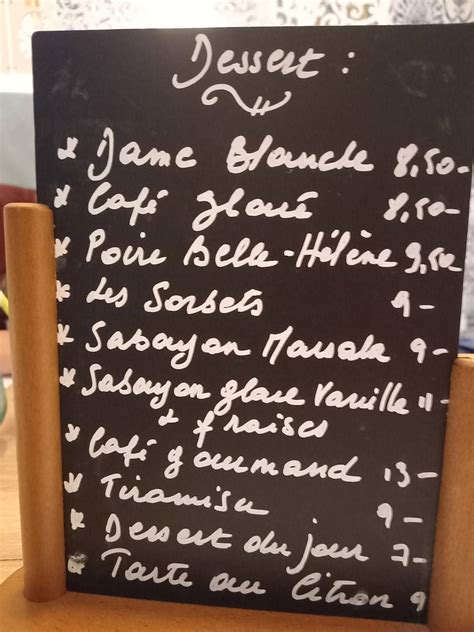 Dessert :
* Dame Blanche 8,50-
* Café glacé 8,50-
* Poire Belle-Hélène 9,50
* Les Sorbets 9-
* Sabayon Marsala 9-
* Sabayon glace Vanille 11-
+ fraises
* Café gourmand 13-
* Tiramisu 9-
* Dessert du jour 7-
* Tarte au Citron 9